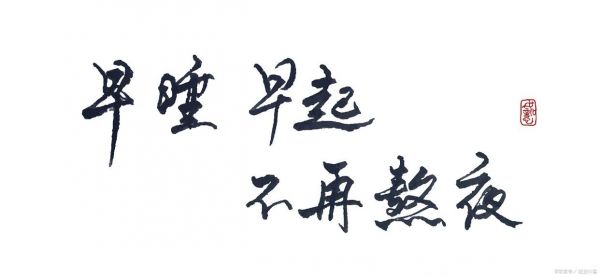 早睡 早起
不再熬夜